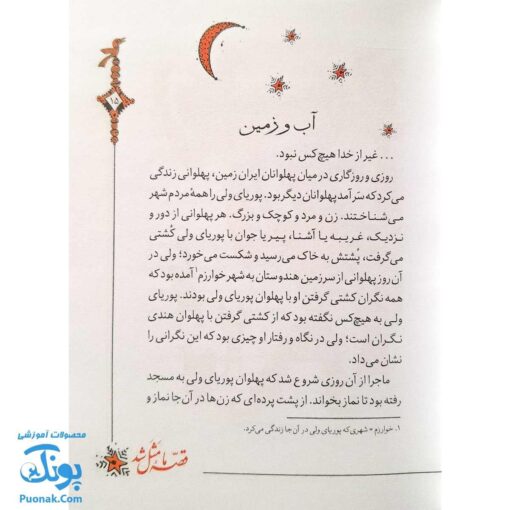 ۱۵
آب و زمین
... غیر از خدا هیچ‌کس نبود.
روزی و روزگاری در میان پهلوانان ایران زمین، پهلوانی زندگی
می‌کرد که سَرآمد پهلوانان دیگر بود. پوریای ولی را همهٔ مردم شهر
می‌شناختند. زن و مرد و کوچک و بزرگ. هر پهلوانی از دور و
نزدیک، غریبه یا آشنا، پیر یا جوان با پوریای ولی کُشتی
می‌گرفت، پُشتش به خاک می‌رسید و شکست می‌خورد؛ ولی در
آن روز پهلوانی از سرزمین هندوستان به شهر خوارزم۱ آمده بود که
همه نگران کشتی گرفتن او با پهلوان پوریای ولی بودند. پوریای
ولی به هیچ‌کس نگفته بود که از کشتی گرفتن با پهلوان هندی
نگران است؛ ولی در نگاه و رفتار او چیزی بود که این نگرانی را
نشان می‌داد.
ماجرا از آن روزی شروع شد که پهلوان پوریای ولی به مسجد
رفته بود تا نماز بخواند. از پشت پرده‌ای که زن‌ها در آن‌جا نماز و
۱. خوارزم = شهری که پوریای ولی در آن‌جا زندگی می‌کرد.
قصه ما مثل شد
محصولات آموزشی
پونک
Puonak.Com